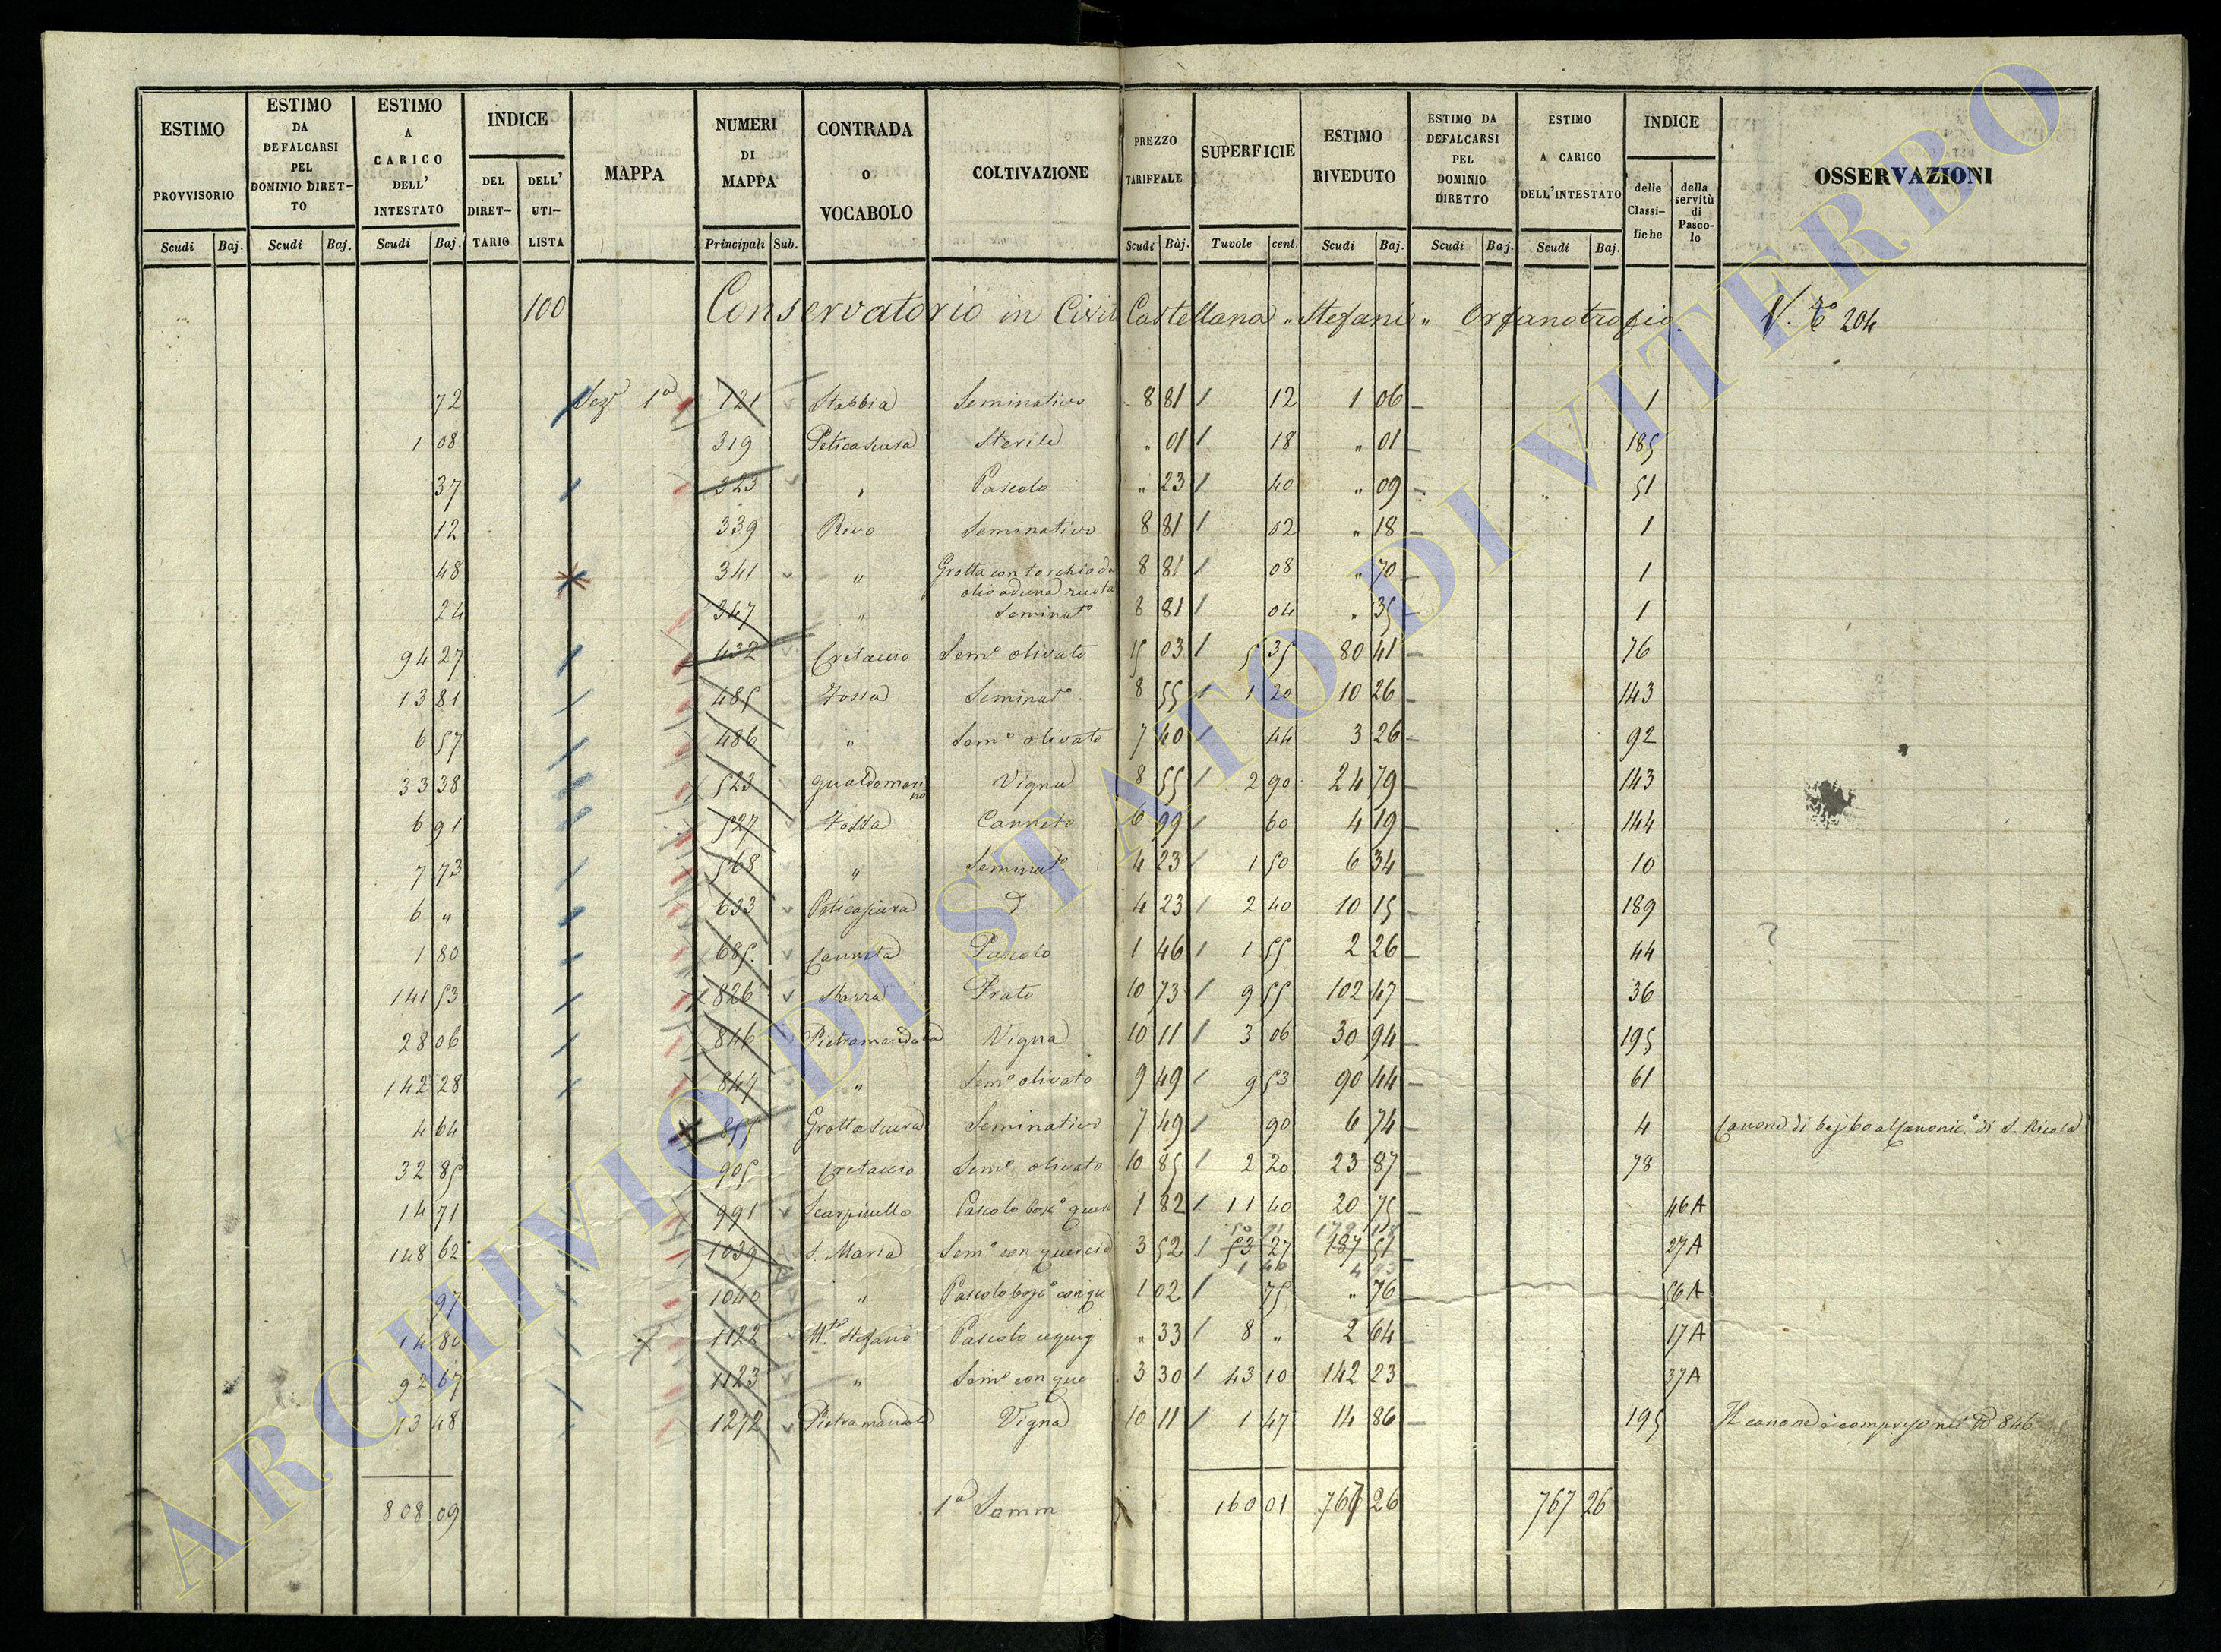 ESTIMO PROVVISORIO Scudi Baj.
ESTIMO DA DEFALCARSI PEL DOMINIO DIRET-TO Scudi Baj.
ESTIMO A CARICO DELL' INTESTATO Scudi Baj.
INDICE DEL DIRET-TARIO DELL' UTI-LISTA
MAPPA
NUMERI DI MAPPA Principali Sub.
CONTRADA O VOCABOLO
COLTIVAZIONE
PREZZO TARIFFALE Scudi Baj.
SUPERFICIE Tavole cent.
ESTIMO RIVEDUTO Scudi Baj.
ESTIMO DA DEFALCARSI PEL DOMINIO DIRETTO Scudi Baj.
ESTIMO A CARICO DELL'INTESTATO Scudi Baj.
INDICE delle Classi-fiche della servitù di Pasco-lo
OSSERVAZIONI
100 Conservatorio in Civita Castellana "Stefani" Orfanotrofio 204
72 Sez.e 1a 121 Stabbia Seminativo 8 81 12 1 06 1
1 08 319 Peticascura Sterile " 01 18 " 01 185
37 323 " Pascolo " 23 40 " 09 51
12 339 Rivo Seminativo 8 81 02 " 18 1
48 341 " Grotta con torchio da olio ad una ruota 8 81 08 " 70 1
24 347 " Seminato 8 81 04 " 35 1
94 27 432 Cretaccio Semo olivato 15 03 5 35 80 41 76
13 81 485 Fossa Seminato 8 55 1 20 10 26 143
6 57 486 " Semo olivato 7 40 44 3 26 92
33 38 523 Gualdomarino Vigna 8 55 2 90 24 79 143
6 91 527 Fossa Canneto 6 99 60 4 19 144
7 73 568 " Seminato 4 23 1 50 6 34 10
6 " 633 Peticascura 4 23 2 40 10 15 189
1 80 685 Canneta Pascolo 1 46 1 55 2 26 44
141 53 826 Sbarra Prato 10 73 9 55 102 47 36
28 06 846 Pietramandata Vigna 10 11 3 06 30 94 195
142 28 847 " Semo olivato 9 49 9 53 90 44 61
4 64 855 Grottascura Seminativo 7 49 90 6 74 4 Canone di di S. Nicola
32 85 905 Cretaccio Semo olivato 10 85 2 20 23 87 78
14 71 991 Scarpinello Pascolo bosco querc 1 82 11 40 20 75 46A
148 62 1039 S. Maria Semo con quercie 3 52 53 27 187 51 27A
97 1040 " Pascolo bosco con que 1 02 75 " 76 56A
14 80 1122 Mte Stefano Pascolo 33 8 " 2 64 17A
92 67 1123 " Semo con que 3 30 43 10 142 23 37A
13 48 1272 Pietramandata Vigna 10 11 1 47 14 86 195 Il canone è compreso nel No 846
808 09 1a Somma 160 01 767 26 767 26
ARCHIVIO DI STATO DI VITERBO